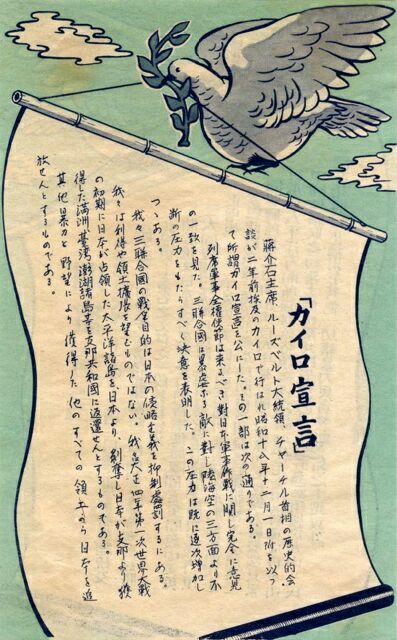 「カイロ宣言」
蔣介石主席、ルーズベルト大統領、チャーチル首相の歴史的会
談が二年前埃及のカイロで行はれ昭和十八年十二月一日附を以つ
て所謂カイロ宣言を公にした。その一部は次の通りである。
列席軍事全權使節は来るべき對日本軍事作戦に関し完全に意見
の一致を見た。三聯合國は なる敵に對し陸海空の三方面より不
断の圧力をもたらすべく決意を表明した。この圧力は既に逐次増加し
つゝある。
我々三聯合國の戦争目的は日本の侵略主義を抑制處罰するにある。
我々は利得や領土擴張を望むものではない。 大正四年第一次世界大戦
の初期に日本が占領した太平洋諸島を日本より剝奪し日本が支那より獲
得した満洲、臺湾、澎湖諸島等を支那共和國に返還せんとするものである。
其他暴力と野望により獲得した他のすべての領土から日本を追
放せんとするものである。